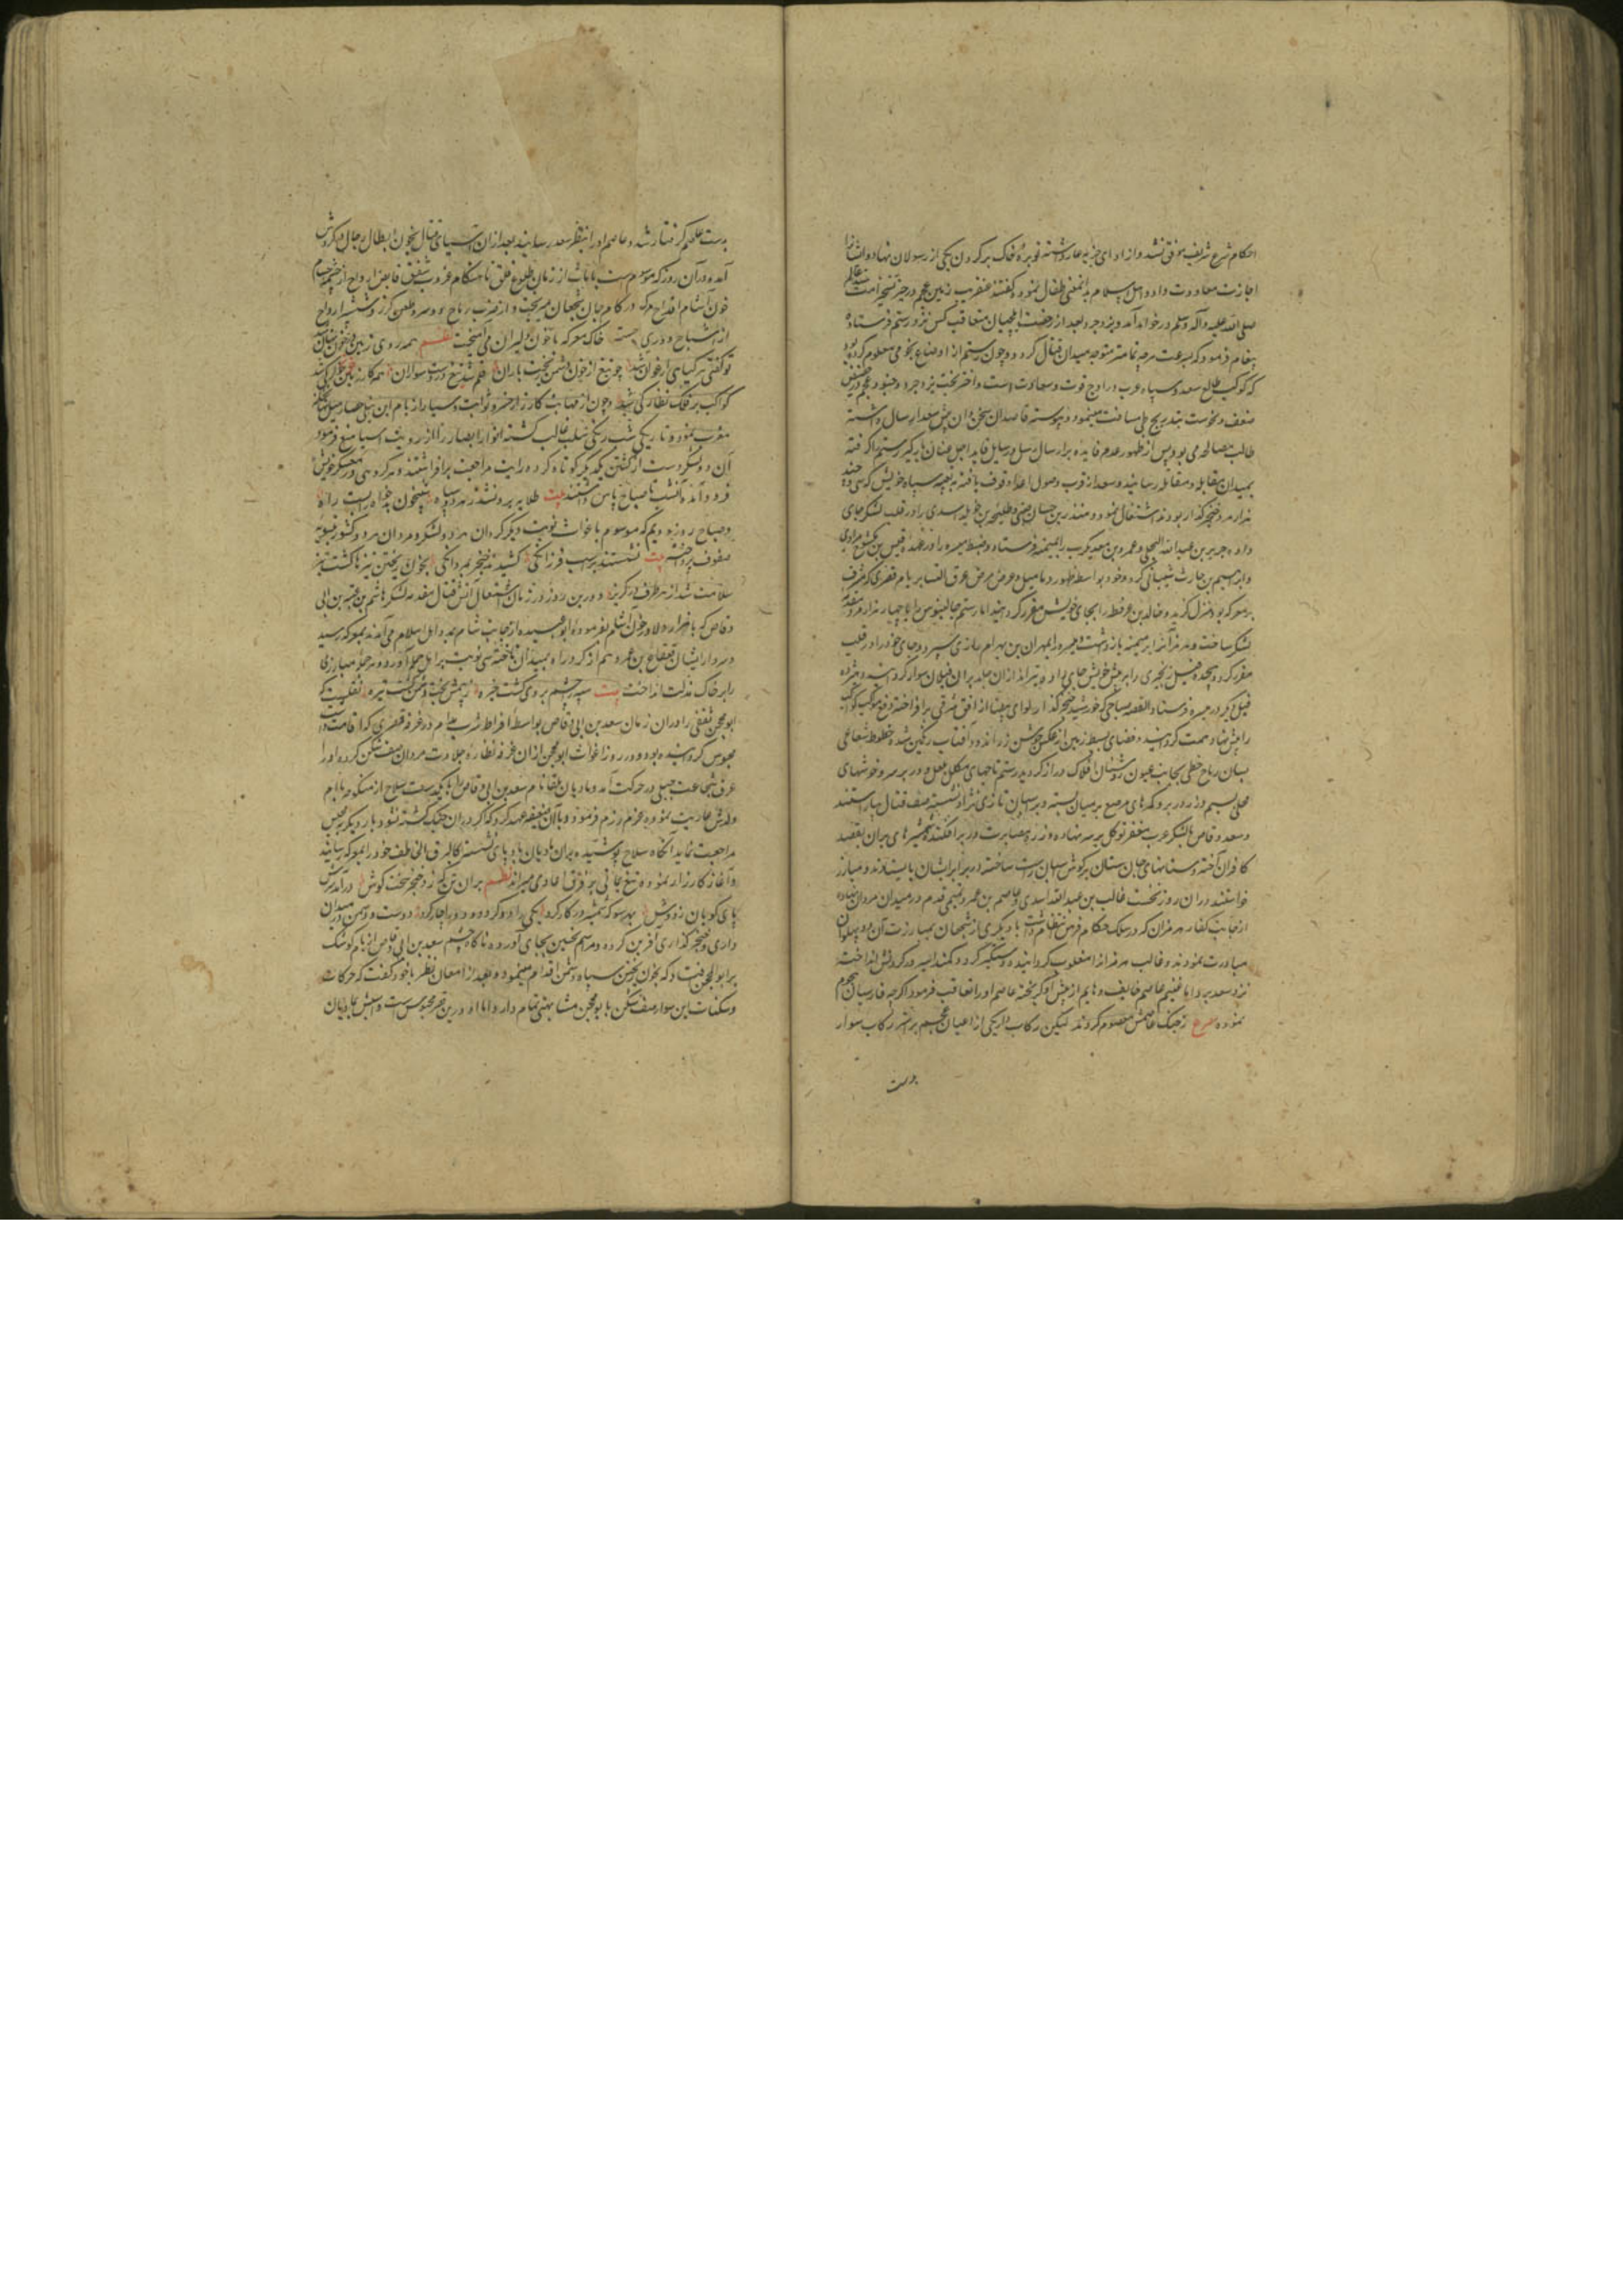 احکام شرع شریف موفق نشد و از ادای جزیه عار داشته توبرهٔ خاک بر گردن یکی از رسولان نهاد و ایشانرا
اجازت معاودت داد و اهل اسلام بدانمعنی تفال نموده گفتند عنقریب زمین عجم در حیز تسخیر امت سید عالم
صلی الله علیه وآله وسلم در خواهد آمد و یزدجرد بعد از رخصت ایلچیان متعاقب کس نزد رستم فرستاده
پیغام فرمود که بسرعت هرچه تمامتر متوجه میدان قتال گردد و چون رستم از اوضاع نجومی معلوم کرده بود
که کوکب طالع سعد و سپاه عرب در اوج قوت و سعادت است و اختر بخت یزدجرد و جنود عجم در حضیض
ضعف و نحوست بتدریج طی مسافت مینمود و پیوسته قاصدان سخن دان پیش سعد ارسال داشته
طالب مصالحه می بود و پس از ظهور عدم فایده بر ارسال رسل و رسایل قاید اجل عنان باره گیر رستم را گرفته
بمیدان مقابله و مقاتله رسانید و سعد از قرب وصول اعدا وقوف یافته به تعبیه سپاه خویش که سی و چند
هزار مرد خنجر گذار بودند اشتغال نمود و منذر بن حسان ضبی و طلیحه بن خویلد اسدی را در قلب لشکر جای
داده جریر بن عبدالله البجلی و عمرو بن معدیکرب را بمیمنه فرستاد و ضبط میسره را در عهده قیس بن مکشوح مرادی
و ابراهیم بن حارث شیبانی کرد و خود بواسطه ظهور دمامیل و عروض مرض عرق النسا بر بام قصری که مشرف
بر معرکه بود منزل گزید و خالد بن عرفطه را بجای خویش مقرر گردانید اما رستم جالینوس را با چهار هزار مرد مقدمه
لشکر ساخت و هرمزان را بر میمنه بازداشت و میسره را بمهران بن بهرام رازی سپرد و جای خود را در قلب
مقرر کرد و هجده فیل زنجیری را بر پیش خویش جای داد و تیراندازان جلد بر آن فیلان سوار گردانید و پانزده
فیل دیگر در میسره فرستاد القصه صباحی که خورشید خنجر گذار لوای بیضا از افق شرقی برافراخته دفع موکب کواکب
را پیش نهاد همت گردانید و فضای بسیط زمین از عکس جوشن زراندود آفتاب رنگین شد و خطوط شعاعی
بسان رماح خطی بجانب عیون روشنان افلاک دراز گردید رستم تاجهای مکلل بلعل و در بر سر و خودهای
محلی بسیم و زر در بر و کمرهای مرصع بر میان بسته و بر اسپان تازی نژاد نشسته صف قتال بیاراستند
و سعد وقاص بالشکر عرب مغفر توکل بر سر نهاده و زره مصابرت در بر افکنده شمشیرهای بران بقصد
کافران آخته و سنانهای جان ستان بر گوش اسپان راست ساخته در برابر ایشان بایستادند و مبارز
خواستند در آن روز نخست غالب بن عبدالله اسدی و عاصم بن عمرو تمیمی قدم در میدان مردان نهاده
از جانب کفار هرمزان که در سلک حکام فرس انتظام داشت با دیگری از شجعان بمبارزت آن دو پهلوان
مبادرت نمودند و غالب هرمزان را مغلوب گردانیده دستگیر کرد و کمند اسیر در گردنش انداخته
نزد سعد برد اما غنیم عاصم خایف و هایم از پیش او گریخته عاصم او را تعاقب فرمود اگرچه فارسیان هجوم
نموده مصرع ز جنگ عاصمش معصوم کردند لیکن رکاب داریکی از اعیان عجم بر استر رکاب سوار
بدست
بدست عاصم گرفتار شد و عاصم او را بنظر سعد رسانید بعد از آن آسیای قتال بخون ابطال رجال در گردش
آمد و در آن روز که موسوم است بارماث از زمان طلوع فلق تا هنگام غروب شفق قابض ارواح از خم حسام
خون آشام اقداح مرگ در کام جان شجعان میریخت و از ضرب رماح و سر و طعن گرز و شمشیر ارواح
از اشباح دوری جست خاک معرکه با خون دلیران می آمیخت نظم همه روی زمین در خون نهان شد
تو گفتی هر گیاهی ارغوان شد چو تیغ از خون دشمن ریخت باران قلم شد تیغ در دست سواران
کواکب بر فلک نظارگی شد و چون از مهابت کارزار خسرو ثوابت و سیار از بام این نیلی حصار میل بجانب
مغرب نمود و تاریکی شب رنگی سلب غالب گشته انوار ابصار را از رویت اسیا منع فرمود
آن دو لشکر دست از کشتن یکدیگر کوتاه کرده رایت مراجعت برافراشتند و هر گروهی در معسکر خویش
فرود آمده آنشب تا صباح پاس داشتند بیت طلایه برون شد ز هر دو سپاه شبیخون بداندیش را بست راه
و صباح روز دویم که موسوم باغواث نوبت دیگر گردان هر دو لشکر و مردان هر دو کشور بتسویه
صفوف پرداخته بیت نشستند بر اسب فرزانگی کشیدند خنجر بمردانگی بخون ریختن نیزها گشت تیز
سلامت شد از هر طرف در گریز و درین روز در زمان اشتعال آتش قتال مقدمه لشکر هاشم بن عتبه بن ابی
وقاص که با هزار دلاور خون آشام بفرموده ابوعبیده از جانب شام بمدد اهل اسلام می آمدند بمعرکه رسید
و سردار ایشان قعقاع بن عمرو هم از گرد راه بمیدان تاخته سی نوبت بر اهل حمله آورد و در هر حمله مبارزی
را بر خاک مذلت انداخت بیت سیه چشم بر وی گشت خیره ز بیمش بخت دشمن گشت تیره نقلست که
ابومحجن ثقفی را در آن زمان سعد بن ابی وقاص بواسطه افراط شرب مدام در غرفه قصری که اقامت داشت
محبوس گردانیده بود و در روز اغواث ابومحجن از آن غرفه نظاره جلادت مردان صف شکن کرده او را
عرق شجاعت جبلی در حرکت آمد و مادیان بلقا نام سعد بن ابی وقاص را با یکدست سلاح از منکوحه یا ام
ولدش عاریت نموده عزم رزم فرمود و با آن ضعیفه عهد کرد که اگر در آن جنگ کشته نشود بار دیگر به محبس
مراجعت نماید آنگاه سلاح پوشیده بر آن مادیان بادپای نشسته کالبرق الخاطف خود را بمعرکه رسانید
و آغاز کارزار نموده تیغ یمانی بر فرق اعادی میراند نظم بران تن که زد خنجر سخت کوش درآمد سرش
پای کوبان ز دوش بهر سو که شمشیر در کار کرد یکی را دو کرد و دو را چار کرد دوست و دشمن در میدان
داری و خنجر گذاری آفرین کرده و مراسم تحسین بجای آورده ناگاه چشم سعد بن ابی وقاص از بام کوشک
بر ابومحجن افتاد که بخون ریختن سپاه دشمن اقدام مینمود و بعد از امعان نظر با خود گفت که حرکات
و سکنات این سوار صف شکن با ابومحجن مشابهتی تمام دارد اما او درین قصر محبوس است و اسبش بمادیان